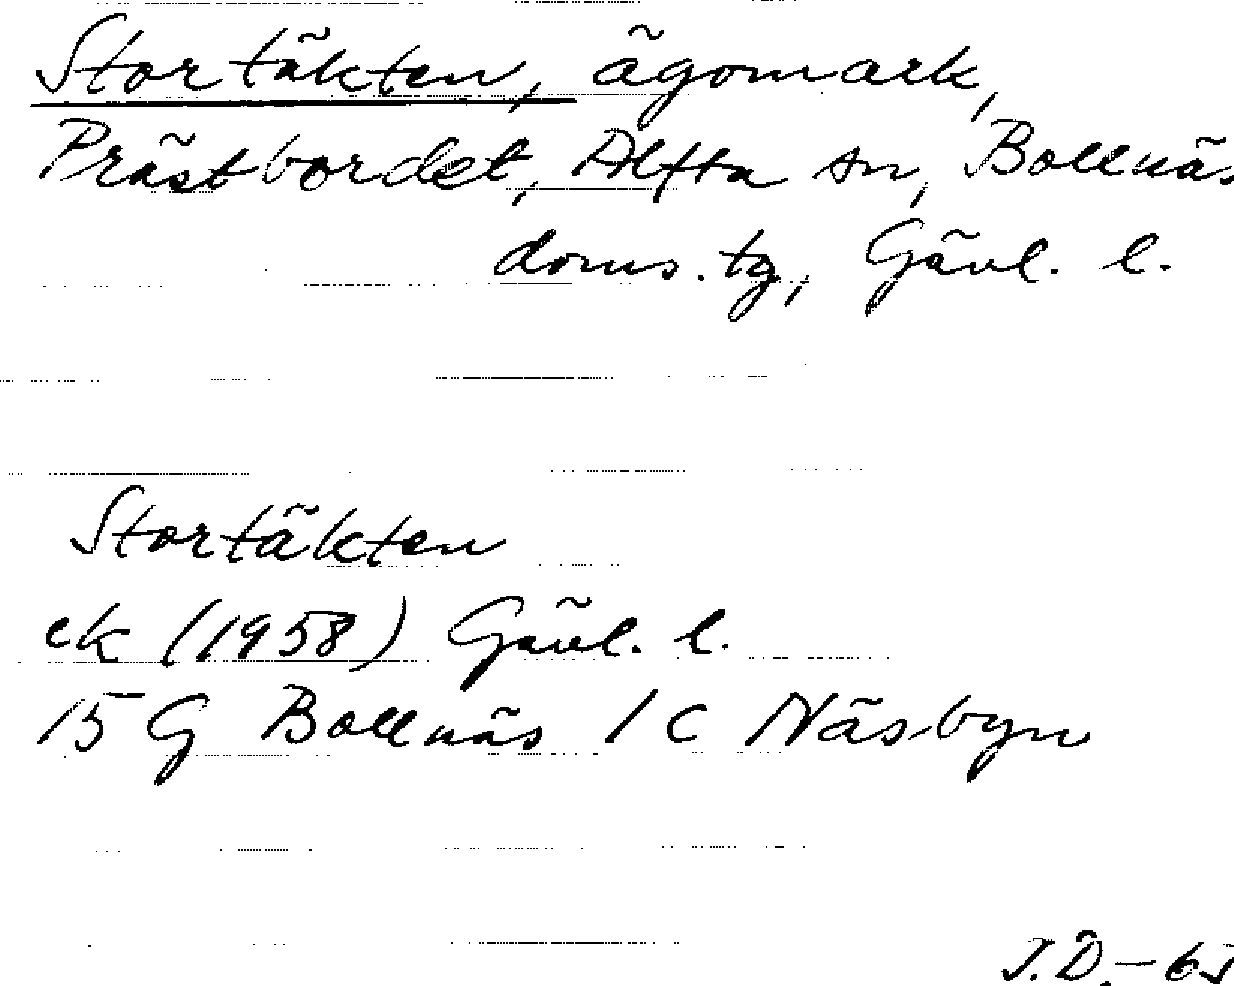 Stortäkten, ägomark,
Prästbordet, Alfta sn, Bollnäs
doms.tg, Gävl. l.
Stortäkten
ek (1958) Gävl. l.
15 G Bollnäs 1 C Näsbyn
J.Ö.-65